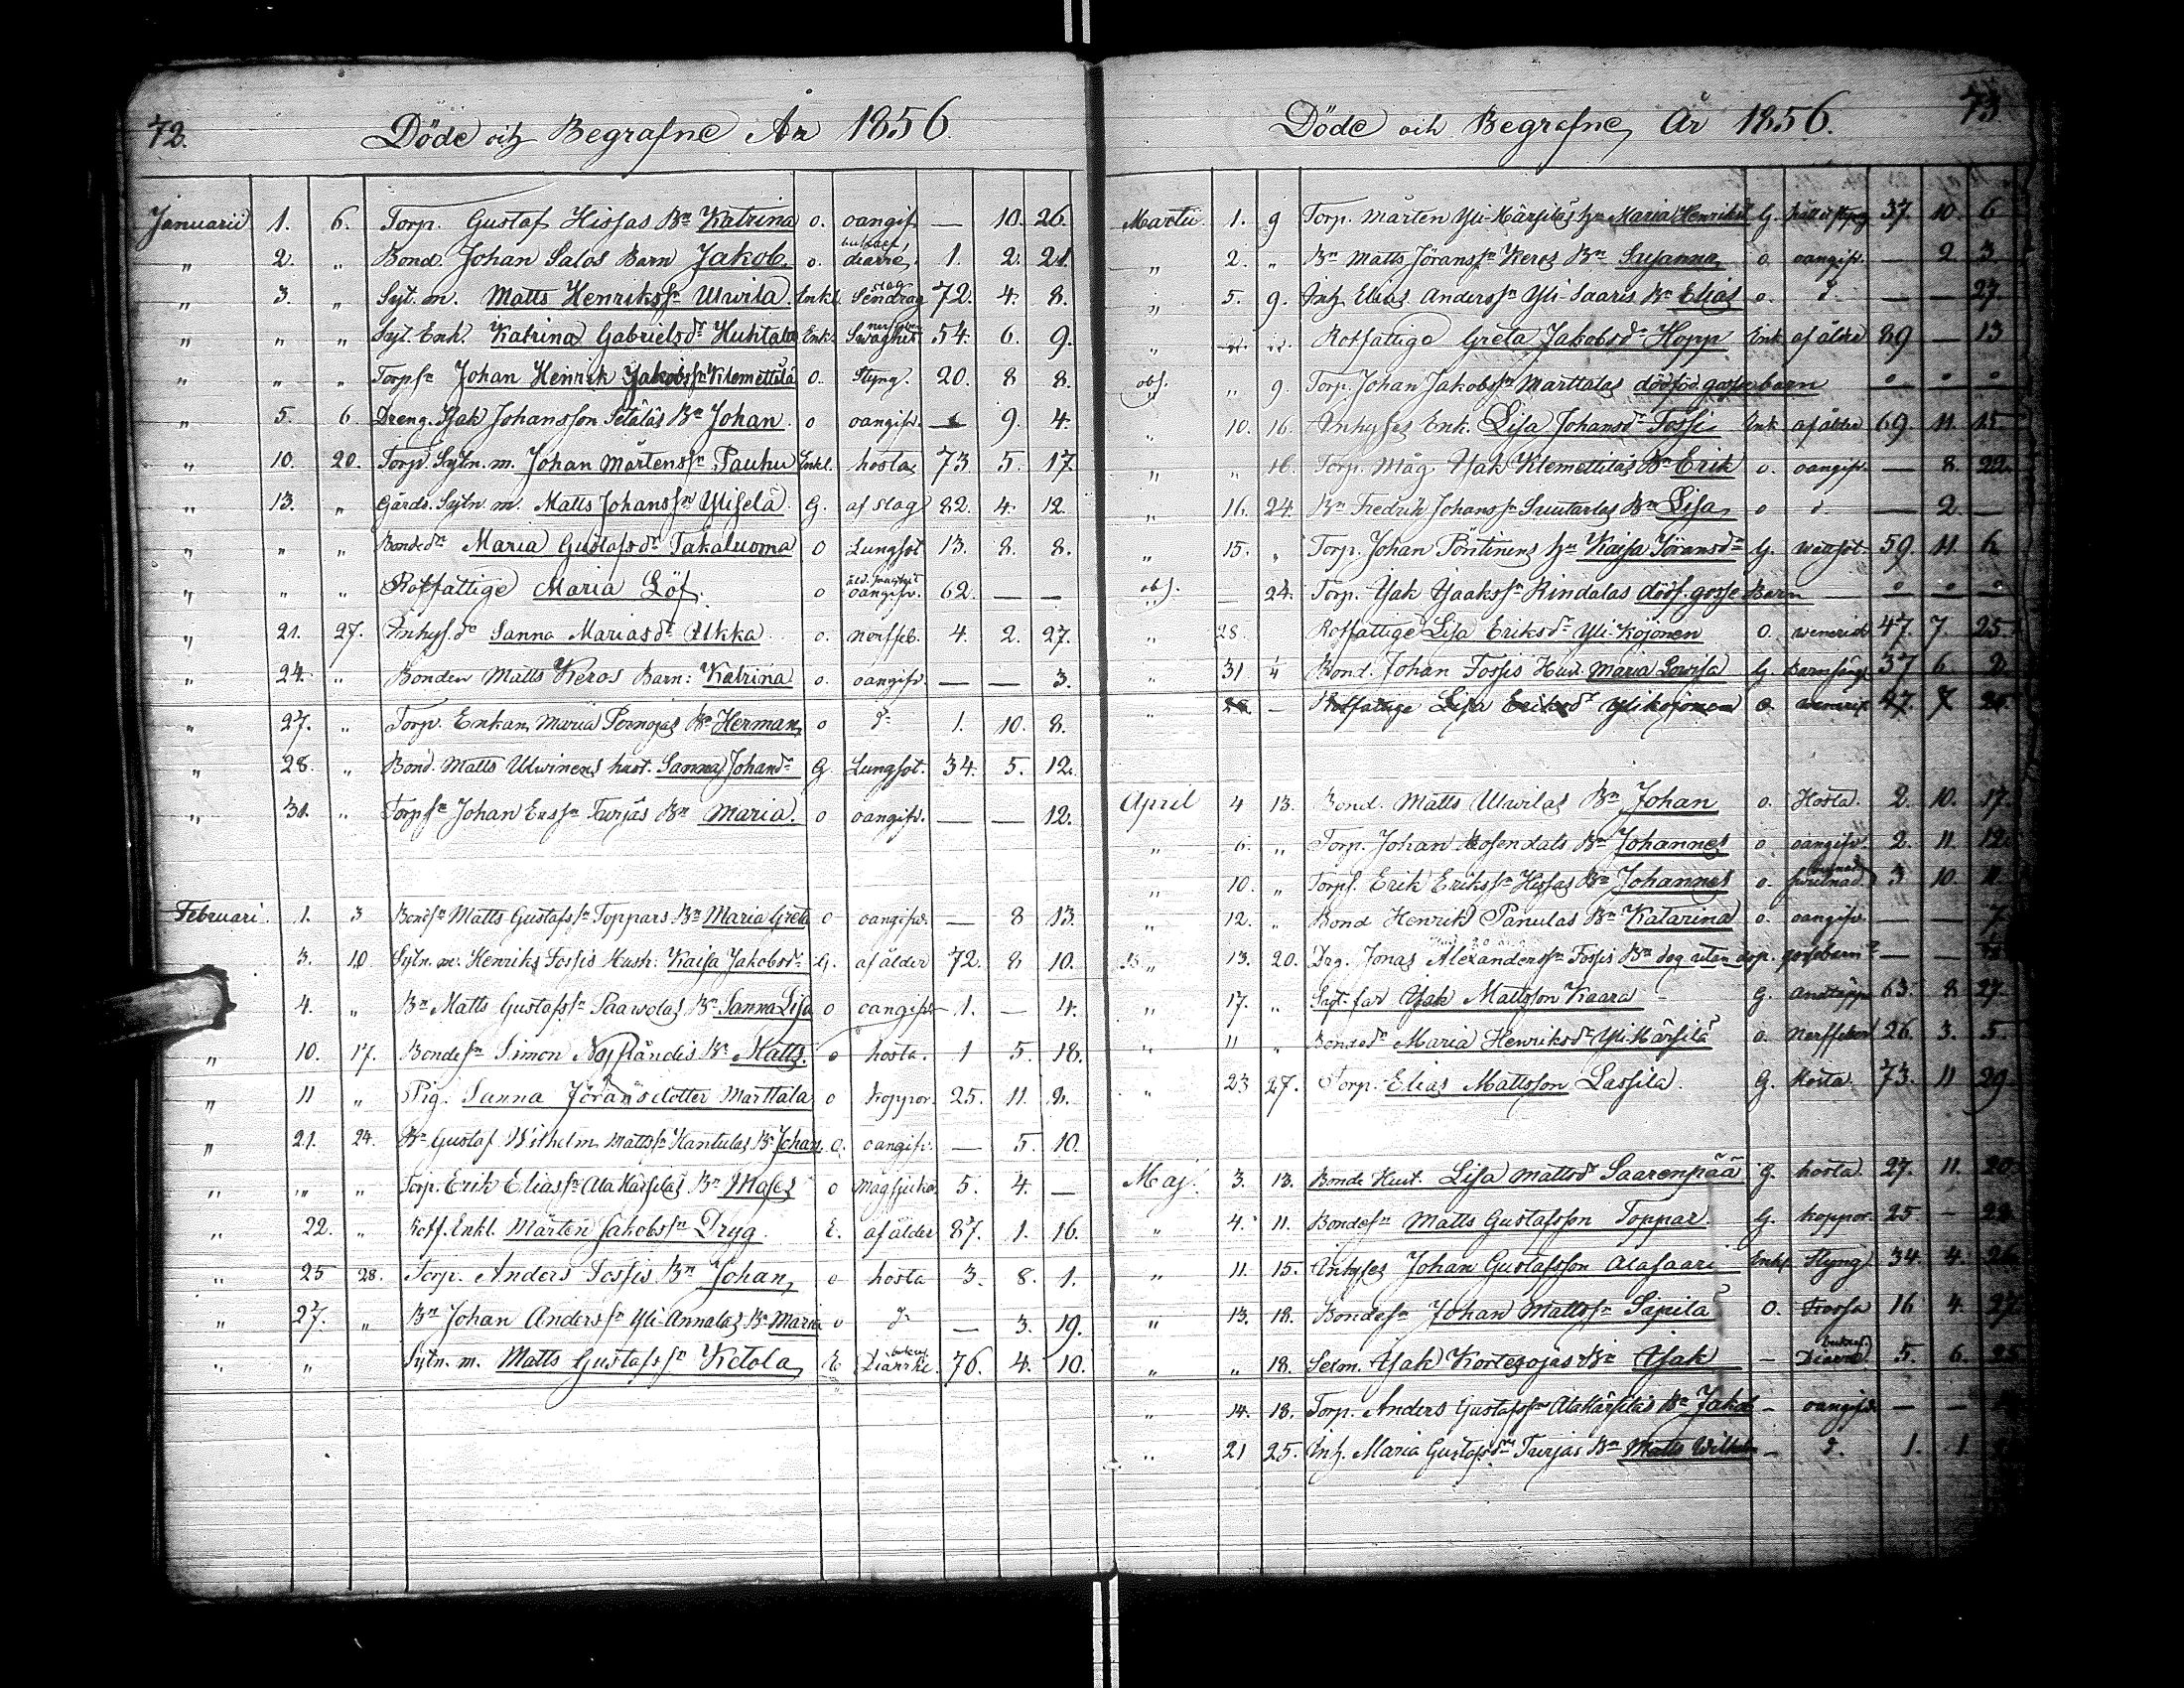 72.
Döde och Begrafne År 1856.
Januarii 1. 6. Torp. Gustaf Hissas Bn Katrina o. oangif. — 10. 26.
„ 2. „ Bond. Johan Salos Barn Jakob. o. diarré. 1. 2. 21.
„ 3. „ Syt. m. Matts Henrikssn Ulwila Enkl. Sendrag slag 72. 4. 8.
„ „ „ Syt. Enk. Katrina Gabrielsdr Huhtala Enk. Swaghet 54. 6. 9.
„ „ „ Torpsn Johan Heinrik Jakobssn Klemettilä o. Styng. 20. 8 8.
„ 5. 6. Dreng. Isak Johansson Setäläs Bn Johan. o oangifv. — 9. 4.
„ 10. 20. Torp. Sytn. m. Johan Mårtenssn Pauhu Enkl. hosta 73. 5. 17.
„ 13. „ Gårds. Sytn. m. Matts Johanssn Yliselä G. af slag 82. 4. 12.
„ „ „ Bondedr Maria Gustafsdr Takaluoma o Lungsot 13. 8. 8.
„ „ „ Rotfattige Maria Löf. o oangifv. 62. — —
„ 21. 27. Inhys. dr Sanna Mariasdr Ukka o. nerffeb. 4. 2. 27.
„ 24. „ Bonden Matts Keros Barn: Katrina o. oangifv. — — 3.
„ 27. „ Torp. Enkan Maria Pernojas Bn Herman o do 1. 10. 8.
„ 28. „ Bond. Matts Ulwinens hust. Sanna Johansdr G. Lungsot. 34. 5. 12.
„ 31. „ Torpsn Johan Erssn Turjas Bn Maria. o oangifv. — — 12.
Februari. 1. 3 Bondsn Matts Gustafssn Toppars Bn Maria Greta o oangifv. — 8 13.
3. 10 Sytn. m. Henriks Fossis Hust: Kaisa Jakobsdr G. af ålder 72. 8 10.
4. „ Bn Matts Gustafssn Paawolas Bn Sanna Lisa o oangifv. 1. — 4.
„ 10. 17. Bondesn Simon Bn Matts. o hosta. 1 5. 18.
„ 11 „ Pig. Sanna Jöransdotter Marttala o koppor. 25. 11. 8.
„ 21. 24. Bn Gustaf Wilhelm Mattssn Hantulas Bn Johan. o. oangifv. — 5. 10.
„ „ „ Torp. Erik Eliassn Ala Härsiläs Bn Moses o Magsjuka 5. 4. —
„ 22. „ Rotf. Enkl. Mårten Jakobssn Dryg E. af ålder 87. 1. 16.
„ 25 28. Torp. Anders Fossis Bn Johan, o hosta 3. 8. 1.
„ 27. „ Bn Johan Anderssn Yli-Annalas Bn Maria o do — 3. 19.
„ „ Sytn. m. Matts Gustafssn Ketola E. Diarrhé. 76. 4. 10.
73
Döde och Begrafne År 1856.
Martii. 1. 9 Torp. Mårten Yli-Härsiläs hu Maria Henriksd G. 37. 10. 6
„ 2. „ Bn Matts Jöranssn Keros Bn Susanna o. oangifv. — 2 3
„ 5. 9. Inh. Elias Anderssn Yli-Saaris Bn Elias o. d. — — 27.
„ „ „ Rotfattige Greta Jakobsdr Hopp Enk. af ålder 89 — 13
obs. „ 9. Torp. Johan Jakobssn Marttalas dödföd gossebarn o o o
„ 10. 16. Inhyses Enk. Lisa Johansdr Fossi Enk. af ålder 69. 11. 15.
„ „ 16. Torp. Måg. Isak Klemettiläs Bn Erik o. oangifv. — 8. 22.
„ 16. 24. Bn Fredrik Johanssn Suutarlas Bn Lisa o d. — 2. —
„ 15. „ Torp. Johan Pöntinens hu Kaisa Jöransdr G. Wattsot. 59. 11. 6.
obs. — 24. Torp. Isak Isakssn Rindalas dödf. gosse Barn — o o o
„ 28. Rotfattige Lisa Eriksdr Yli-Kojonen o. wenerisk 47. 7 25.
„ 31. „ Bond. Johan Fossis Hust. Maria Lowisa G. Barnsäng 37 6. 2.
„ 28 — Rotfattige Lisa Eriksdr Ylikojonen o. wenerisk 47. 7 25.
April 4 13. Bond. Matts Ulwilas Bn Johan o. Hosta. 2. 10. 17.
„ 6. „ Torp. Johan Rosendals Bn Johannes o. oangifv. 2. 11. 12.
„ 10. „ Torps. Erik Erikssn Hissas Bn Johannes o. 3 10.
„ 12. „ Bond Henrik Panulas Bn Katarina o. oangifv. — — 7.
13. 20. Drg. Jonas Alexanderssn Fossis Bn dog utan dop. gossebarn — —
„ 17. „ Sägt. far Isak Mattsson Kaara — G. Andtäppa 63. 8 27.
„ „ „ Bondedr Maria Henriksdr Yli-Härsilä o. Nerffeber 26. 3. 5.
„ 23 27. Torp. Elias Mattsson Lassila. G. Hosta. 73. 11 29.
Maj. 3. 13. Bonde Hust. Lisa Mattsdr Saarenpää G. hosta. 27. 11. 20.
„ 4. 11. Bondesn Matts Gustafsson Toppar. G. koppor. 25. — 22.
„ 11. 15. Inhyses Johan Gustafsson Alasaari Enkl. Styng 34. 4. 26.
„ 13. 18. Bondesn Johan Mattssn Sipilä o. Frossa 16 4. 27.
„ „ 18. Selm. Isak Kortesojas Bn Isak — Diarré. 5. 6. 25
„ 14. 18. Torp. Anders Gustafssn Ala Härsiläs Bn Jakob — oangifv. — —
„ 21 25. Inh. Maria Gustafsdr Turjas Bn Matts Wilhelm — d. 1. 1.